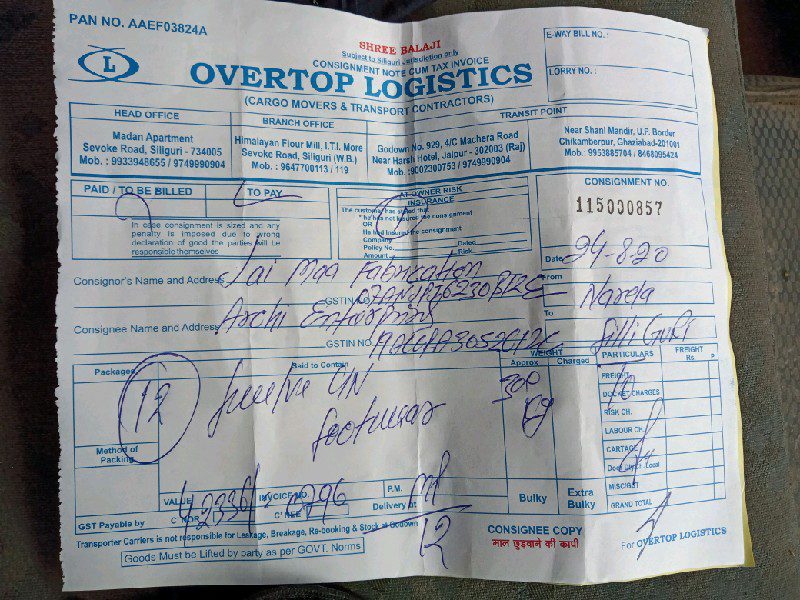 PAN NO. AAEF03824A
SHREE BALAJI
Subject to Siliguri Jurisdiction only
CONSIGNMENT NOTE CUM TAX INVOICE
L
OVERTOP LOGISTICS
(CARGO MOVERS & TRANSPORT CONTRACTORS)
E-WAY BILL NO.:
LORRY NO.:
HEAD OFFICE
Madan Apartment
Sevoke Road, Siliguri - 734005
Mob. : 9933948655 / 9749990904
BRANCH OFFICE
Himalayan Flour Mill, I.T.I. More
Sevoke Road, Siliguri (W.B.)
Mob. : 9647700113 / 119
TRANSIT POINT
Godown No. 929, 4/C Machera Road
Near Harsh Hotel, Jaipur - 302003 (Raj)
Mob.: 9002300753 / 9749990904
Near Shani Mandir, U.P. Border
Chikamberpur, Ghaziabad-201091
Mob.: 9953885704 / 8468095424
PAID / TO BE BILLED
TO PAY
In case consignment is sized and any
penalty is imposed due to wrong
declaration of good the parties will be
responsible themselves
AT OWNER RISK
INSURANCE
The customer has stated that
he has not insured the consignment
OR
He Had Insured the consignment
Company
Policy No. Dated
Amount Risk
CONSIGNMENT NO.
115000857
Date 29-8-20
Consignor's Name and Address Jai Maa Fabrication
GSTIN NO.
From Narela
Consignee Name and Address Archi Enterprises
GSTIN NO.
To Silli Guri
Packages
Said to Contain
WEIGHT
Approx
Charged
PARTICULARS
FREIGHT
Rs. P
12
Twelve GN
footwear
300
Kg
FREIGHT
DOCKET CHARGES
RISK CH.
LABOUR CH.
CARTAGE
Door Dly. Local
MISC/GST
GRAND TOTAL
Method of
Packing
VALUE
INVOICE NO.
P.M.
Delivery at
12
Bulky
Extra
Bulky
GST Payable by
C'NOR
C'NEE
Transporter Carriers is not responsible for Leakage, Breakage, Re-booking & Stock at Godown
Goods Must be Lifted by party as per GOVT. Norms
CONSIGNEE COPY
माल छुड़वाने की कापी
For OVERTOP LOGISTICS